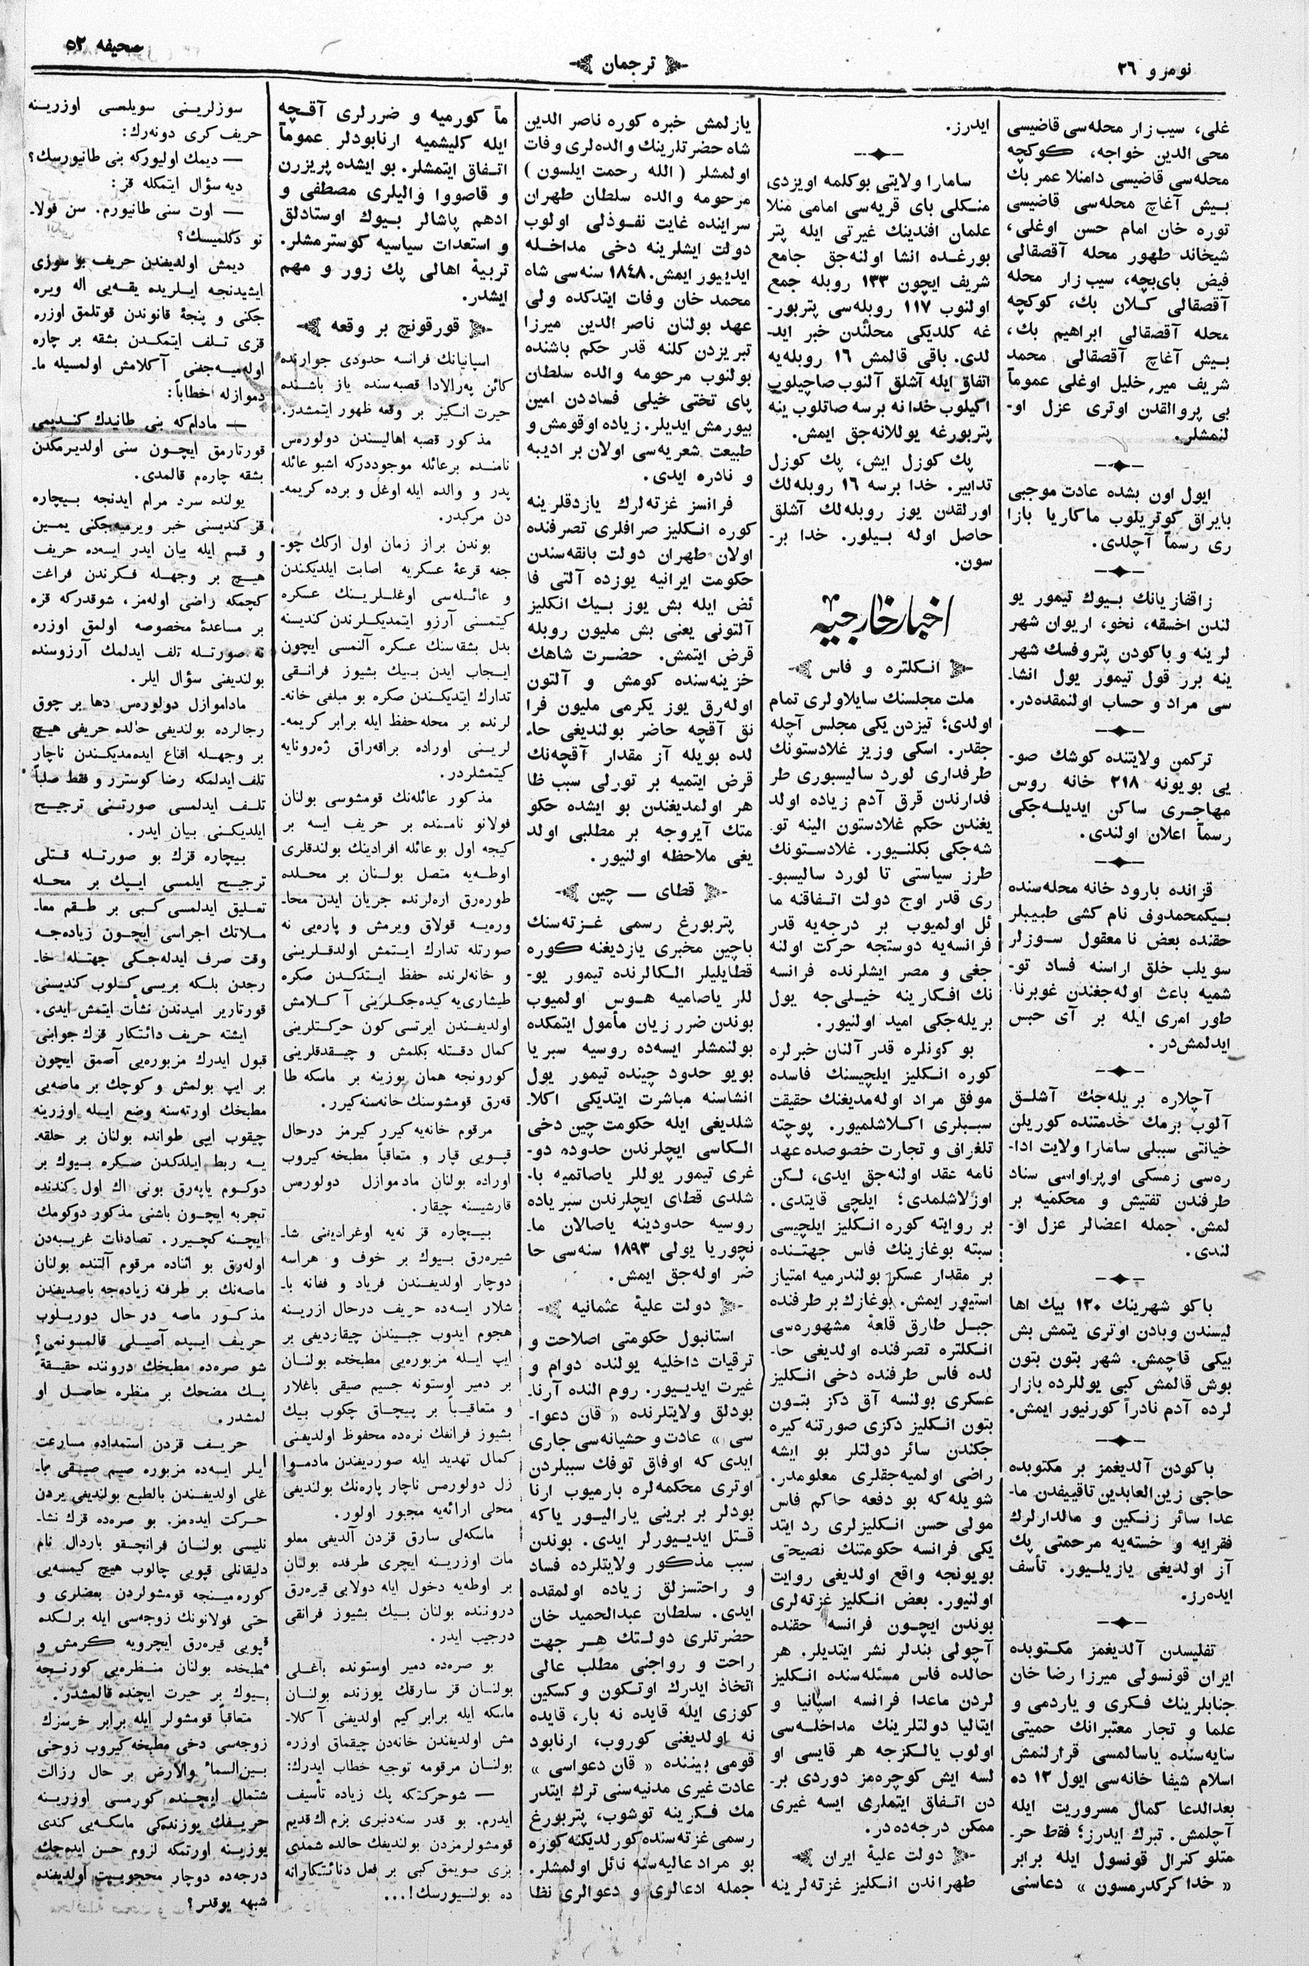 نومرو ٢٦
ترجمان
صحیفه ٥٢
غلی، سیب زار محله سی قاضیسی
محی الدین خواجه، كوكچه
محله سی قاضیسی داملا عمر بك
بیش آغاچ محله سی قاضیسی
توره خان امام حسن اوغلی،
شیخاند طهور محله آقصقالی
فیض بای بچه، سیب زار محله
آقصقالی كلان بك، كوكچه
محله آقصقالی ابراهیم بك،
بیش آغاچ آقصقالی محمد
شریف میر، خلیل اوغلی عموماً
بی پروالقدن اوتری عزل او-
لنمشلر.
ایول اون بشده عادت موجبی
بایراق كوتریلوب ماكاریا بازا
ری رسماً آچلدی.
زاقفازیانك بیوك تیمور یو
لندن اخسقه، نخو، اریوان شهر
لرینه و باكودن پتروفسك شهر
ینه برر قول تیمور یول انشا-
سی مراد و حساب اولنمقده در.
تركمن ولایتنده كوشك صو-
یی بویونه ٢١٨ خانه روس
مهاجری ساكن ایدیله جكی
رسماً اعلان اولندی.
قزانده بارود خانه محله سنده
بیكمحمدوف نام كشی طبیبلر
حقنده بعض نا معقول سوزلر
سویلب خلق اراسنه فساد تو-
شمیه باعث اوله جغندن غوبرنا-
طور امری ایله بر آی حبس
ایدلمش در.
آچلاره بریله جك آشلق
آلوب برمك خدمتنده كوریلن
خیانتی سببلی سامارا ولایت ادا-
ره سی زمسكی اوپراواسی سناد
طرفندن تفتیش و محكمیه بر
لمش. جمله اعضالر عزل او-
لندی.
باكو شهرینك ١٢٠ بیك اها
لیسندن وبادن اوتری یتمش بش
بیكی قاچمش. شهر بتون بتون
بوش قالمش كبی یوللرده بازار
لرده آدم نادراً كورنیور ایمش.
باكودن آلدیغمز بر مكتوبده
حاجی زین العابدین تاقییفدن ما-
عدا سائر زنكین و مالدارلرك
فقرایه و خسته یه مرحمتی پك
آز اولدیغی یازیلیور. تأسف
ایده رز.
تفلیسدن آلدیغمز مكتوبده
ایران قونسولی میرزا رضا خان
جنابلرینك فكری و یاردمی و
علما و تجار معتبرانك حمیتی
سایه سنده یاسالمسی قرارلنمش
اسلام شیفا خانه سی ایول ١٢ ده
بعدالدعا كمال مسروریت ایله
آچلمش. تبرك ایدرز؛ فقط حر-
متلو كنرال قونسول ایله برابر
« خدا كركدرمسون » دعاسنی
ایدرز.
سامارا ولایتی بوكلمه اویزدی
منكلی بای قریه سی امامی منلا
علمان افندینك غیرتی ایله پتر
بورغده انشا اولنه جق جامع
شریف ایچون ١٣٣ روبله جمع
اولنوب ١١٧ روبله سی پتربور-
غه كلدیكی محلندن خبر اید-
لدی. باقی قالمش ١٦ روبله یه
اتفاق ایله آشلق آلنوب صاچیلوب
اكیلوب خدا نه برسه صاتلوب ینه
پتربورغه یوللانه جق ایمش.
پك كوزل ایش، پك كوزل
تدابیر. خدا برسه ١٦ روبله لك
اورلقدن یوز روبله لك آشلق
حاصل اوله بیلور. خدا بر-
سون.
اخبار خارجیه
انكلتره و فاس
ملت مجلسنك سایلاولری تمام
اولدی؛ تیزدن یكی مجلس آچله
جقدر. اسكی وزیر غلادستونك
طرفداری لورد سالیسبوری طر
فدارندن قرق آدم زیاده اولد
یغندن حكم غلادستون الینه تو
شه جكی بكلنیور. غلادستونك
طرز سیاستی تا لورد سالیسبو-
ری قدر اوج دولت اتفاقنه ما
ئل اولمیوب بر درجه یه قدر
فرانسه یه دوستجه حركت اولنه
جغی و مصر ایشلرنده فرانسه
نك افكارینه خیلی جه یول
بریله جكی امید اولنیور.
بو كونلره قدر آلنان خبرلره
كوره انكلیز ایلچیسنك فاسده
موفق مراد اوله مدیغنك حقیقت
سببلری اكلاشلمیور. پوچته
تلغراف و تجارت خصوصده عهد
نامه عقد اولنه جق ایدی، لكن
اوزلاشلمدی؛ ایلچی قایتدی.
بر روایته كوره انكلیز ایلچیسی
سبته بوغازینك فاس جهتنده
بر مقدار عسكر بولندرمیه امتیاز
استیور ایمش. بوغازك بر طرفنده
جبل طارق قلعۀ مشهوره سی
انكلتره تصرفنده اولدیغی حا-
لده فاس طرفنده دخی انكلیز
عسكری بولنسه آق دكز بتون
بتون انكلیز دكزی صورتنه كیره
جكندن سائر دولتلر بو ایشه
راضی اولمیه جقلری معلومدر.
شویله كه بو دفعه حاكم فاس
مولی حسن انكلیزلری رد ایتد
یكی فرانسه حكومتنك نصیحتی
بویونجه واقع اولدیغی روایت
اولنیور. بعض انكلیز غزته لری
بوندن ایچون فرانسه حقنده
آچولی بندلر نشر ایتدیلر. هر
حالده فاس مسئله سنده انكلیز
لردن ماعدا فرانسه اسپانیا و
ایتالیا دولتلرینك مداخله سی
اولوب یالكزجه هر قایسی او
لسه ایش كوچره مز دوردی بر-
دن اتفاق ایتملری ایسه غیری
ممكن درجه ده در.
دولت علیۀ ایران
طهراندن انكلیز غزته لرینه
یازلمش خبره كوره ناصر الدین
شاه حضرتلرینك والده لری وفات
اولمشلر ( الله رحمت ایلسون )
مرحومه والده سلطان طهران
سراینده غایت نفوذلی اولوب
دولت ایشلرینه دخی مداخله
ایدییور ایمش. ١٨٤٨ سنه سی شاه
محمد خان وفات ایتدكده ولی
عهد بولنان ناصر الدین میرزا
تبریزدن كلنه قدر حكم باشنده
بولنوب مرحومه والده سلطان
پای تختی خیلی فساددن امین
بیورمش ایدیلر. زیاده اوقومش و
طبیعت شعریه سی اولان بر ادیبه
و نادره ایدی.
فرانسز غزته لرك یازدقلرینه
كوره انكلیز صرافلری تصرفنده
اولان طهران دولت بانقه سندن
حكومت ایرانیه یوزده آلتی فا
ئض ایله بش یوز بیك انكلیز
آلتونی یعنی بش ملیون روبله
قرض ایتمش. حضرت شاهك
خزینه سنده كومش و آلتون
اوله رق یوز یكرمی ملیون فرا
نق آقچه حاضر بولندیغی حا-
لده بویله آز مقدار آقچه نك
قرض ایتمیه بر تورلی سبب ظا
هر اولمدیغندن بو ایشده حكو
متك آیروجه بر مطلبی اولد
یغی ملاحظه اولنیور.
قطای — چین
پتربورغ رسمی غزته سنك
باچین مخبری یازدیغنه كوره
قطایلیلر الكالرنده تیمور یو-
للر یاصامیه هوس اولمیوب
بوندن ضرر زیان مأمول ایتمكده
بولنمشلر ایسه ده روسیه سبریا
بویو حدود چینده تیمور یول
انشاسنه مباشرت ایتدیكی اكلا-
شلدیغی ایله حكومت چین دخی
الكاسی ایچلرندن حدوده دو-
غری تیمور یوللر یاصاتمیه با-
شلدی قطای ایچلرندن سبریاده
روسیه حدودینه یاصالان ما-
نچوریا یولی ١٨٩٣ سنه سی حا
ضر اوله جق ایمش.
دولت علیۀ عثمانیه
استانبول حكومتی اصلاحت و
ترقیات داخلیه یولنده دوام و
غیرت ایدییور. روم النده آرنا-
بودلق ولایتلرنده « قان دعوا-
سی » عادت وحشیانه سی جاری
ایدی كه اوفاق توفك سببلردن
اوتری محكمه لره بارمیوب ارنا
بودلر بر برینی یارالیور یاكه
قتل ایدییورلر ایدی. بوندن
سبب مذكور ولایتلرده فساد
و راحتسزلق زیاده اولمقده
ایدی. سلطان عبدالحمید خان
حضرتلری دولتك هر جهت
راحت و رواجنی مطلب عالی
اتخاذ ایدرك اوتكون و كسكین
كوزی ایله قایده نه بار، قایده
نه اولدیغنی كوروب، ارنابود
قومی بیننده « قان دعواسی »
عادت غیری مدنیه سنی ترك ایتدر
مك فكرینه توشوب، پتربورغ
رسمی غزته سنده كورلدیكنه كوره
بو مراد عالیه سنه نائل اولمشلر.
جمله ادعالری و دعوالری نظا
ماً كورمیه و ضررلری آقچه
ایله كلیشمیه ارنابودلر عموماً
اتفاق ایتمشلر. بو ایشده پریزرن
و قاصووا والیلری مصطفی و
ادهم پاشالر بیوك اوستادلق
و استعدات سیاسیه كوسترمشلر.
تربیۀ اهالی پك زور و مهم
ایشدر.
قورقونچ بر وقعه
اسپانیانك فرانسه حدودی جوارنده
كائن په رالادا قصبه سنده یاز باشنده
حیرت انكیز بر وقعه ظهور ایتمشدر.
مذكور قصبه اهالیسندن دولوره س
نامنده بر عائله موجوددركه اشبو عائله
پدر و والده ایله اوغل و برده كریمه-
دن مركبدر.
بوندن براز زمان اول اركك چو-
جغه قرعۀ عسكریه اصابت ایلدیكندن
و عائله سی اوغللرینك عسكره
كیتمسنی آرزو ایتمدیكلرندن كندیسنه
بدل بشقاسنك عسكره آلنمسی ایچون
ایجاب ایدن بیك بشیوز فرانقی
تدارك ایتدیكندن صكره بو مبلغی خانه-
لرنده بر محله حفظ ایله برابر كریمه-
لرینی اوراده براقه راق ژه رونایه
كیتمشلردر.
مذكور عائله نك قومشوسی بولنان
فولانو نامنده بر حریف ایسه بر
كیجه اول بو عائله افرادینك بولندقلری
اوطه یه متصل بولنان بر محلده
طوره رق اره لرنده جریان ایدن محا-
وره یه قولاق ویرمش و پاره یی نه
صورتله تدارك ایتمش اولدقلرینی
و خانه لرنده حفظ ایتدكدن صكره
طیشاری یه كیده جكلرینی آكلامش
اولدیغندن ایرتسی كون حركتلرینی
كمال دقتله بكلمش و چیقدقلرینی
كورونجه همان یوزینه بر ماسكه طا
قه رق قومشوسنك خانه سنه كیرر.
مرقوم خانه یه كیرر كیرمز درحال
قپویی قپار و متعاقباً مطبخه كیروب
اوراده بولنان مادموازل دولوره س
قارشیسنه چیقار.
بیچاره قز نه یه اوغرادیغنی شا-
شیره رق بیوك بر خوف و هراسه
دوچار اولدیغندن فریاد و فغانه با-
شلار ایسه ده حریف درحال اوزرینه
هجوم ایدوب جیبندن چیقاردیغی بر
ایپ ایله مزبوره یی مطبخده بولنان
بر دمیر اوستونه جسیم صیقی باغلار
و متعاقباً بر پیچاق چكوب بیك
بشیوز فرانقك نره ده محفوظ اولدیغنی
كمال تهدید ایله صوردیغندن مادموا
زل دولوره س ناچار پاره نك بولندیغی
محلی ارائه یه مجبور اولور.
ماسكه لی سارق قزدن آلدیغی معلو
مات اوزرینه ایچری طرفده بولنان
بر اوطه یه دخول ایله دولابی قیره رق
دروننده بولنان بیك بشیوز فرانقی
درجیب ایدر.
بو صره ده دمیر اوستونده باغلی
بولنان قز سارقك یوزنده بولنان
ماسكه ایله برابر كیم اولدیغنی آكلا-
مش اولدیغندن خانه دن چیقماق اوزره
بولنان مرقومه توجیه خطاب ایدرك:
— شو حركتكه پك زیاده تأسیف
ایدرم. بو قدر سنه دنبری بزم اك قدیم
قومشولرمزدن بولندیغك حالده شمدی
بزی صویمق كبی بر فعل دنائتكارانه
ده بولنیورسك!...
سوزلرینی سویلمسی اوزرینه
حریف كری دونه رك:
— دیمك اولیوركه بنی طانیورسك؟
دیه سؤال ایتمكله قز:
— اوت سنی طانیورم. سن فولا-
نو دكلمیسك؟
دیمش اولدیغندن حریف بو سوزی
ایشیدنجه ایلریده یقه یی اله ویره
جكنی و پنجۀ قانوندن قوتلمق اوزره
قزی تلف ایتمكدن بشقه بر چاره
اوله میه جغنی آكلامش اولمسیله ما-
دموازله خطاباً:
— مادام كه بنی طانیدك كندیمی
قورتارمق ایچون سنی اولدیرمكدن
بشقه چاره م قالمدی.
یولنده سرد مرام ایدنجه بیچاره
قز كندیسنی خبر ویرمیه جكنی یمین
و قسم ایله بیان ایدر ایسه ده حریف
هیچ بر وجهله فكرندن فراغت
كچمكه راضی اوله مز، شوقدركه قزه
بر مساعدۀ مخصوصه اولمق اوزره
نه صورتله تلف ایدلمك آرزوسنده
بولندیغنی سؤال ایلر.
مادموازل دولوره س دها بر چوق
رجالرده بولندیغی حالده حریفی هیچ
بر وجهله اقناع ایده مدیكندن ناچار
تلف ایدلمكه رضا كوسترر و فقط صلباً
تلف ایدلمسی صورتنی ترجیح
ایلدیكنی بیان ایدر.
بیچاره قزك بو صورتله قتلی
ترجیح ایلمسی ایپك بر محله
تعلیق ایدلمسی كبی بر طقم معا-
ملاتك اجراسی ایچون زیاده جه
وقت صرف ایدله جكی جهتله خا-
رجدن بلكه بریسی كلوب كندیسنی
قورتاریر امیدندن نشأت ایتمش ایدی.
ایشته حریف دانتكار قزك جوابنی
قبول ایدرك مزبوره یی آصمق ایچون
بر ایپ بولمش و كوچك بر ماصه یی
مطبخك اورته سنه وضع ایله اوزرینه
چیقوب ایپی طوانده بولنان بر حلقه
یه ربط ایلدكدن صكره بیوك بر
دوكوم یاپه رق بونی اك اول كندنده
تجربه ایچون باشنی مذكور دوكومك
ایچنه كچیرر. تصادفات غریبه دن
اوله رق بو اثناده مرقوم آلتنده بولنان
ماصه نك بر طرفنه زیاده جه باصدیغندن
مذكور ماصه در حال دوریلوب
حریف ایپده آصیلی قالمسونمی؟
شو صره ده مطبخك دروننده حقیقةً
پك مضحك بر منظره حاصل او
لمشدر.
حریف قزدن استمداده مسارعت
ایلر ایسه ده مزبوره صیم صیقی با-
غلی اولدیغندن بالطبع بولندیغی یردن
حركت ایده مز. بو صره ده قزك نشا-
نلیسی بولنان فرانچقو باردال نام
دلیقانلی قپویی چالوب هیچ كیمسه یی
كوره مینجه قومشولردن بعضلری و
حتی فولانونك زوجه سی ایله برلكده
قپویی قیره رق ایچرویه كرمش و
مطبخده بولنان منظره یی كورنجه
بیوك بر حیرت ایچنده قالمشدر.
متعاقباً قومشولر ایله برابر خرسزك
زوجه سی دخی مطبخه كیروب زوجنی
بین السماء والارض بر حال رزالت
شتمال ایچنده كورمسی اوزرینه
حریفك یوزنده كی ماسكه یی كندی
یوزینه اورتمكه لزوم حسن ایده جك
درجه ده دوچار محجوبیت اولدیغنده
شبهه یوقدر؟